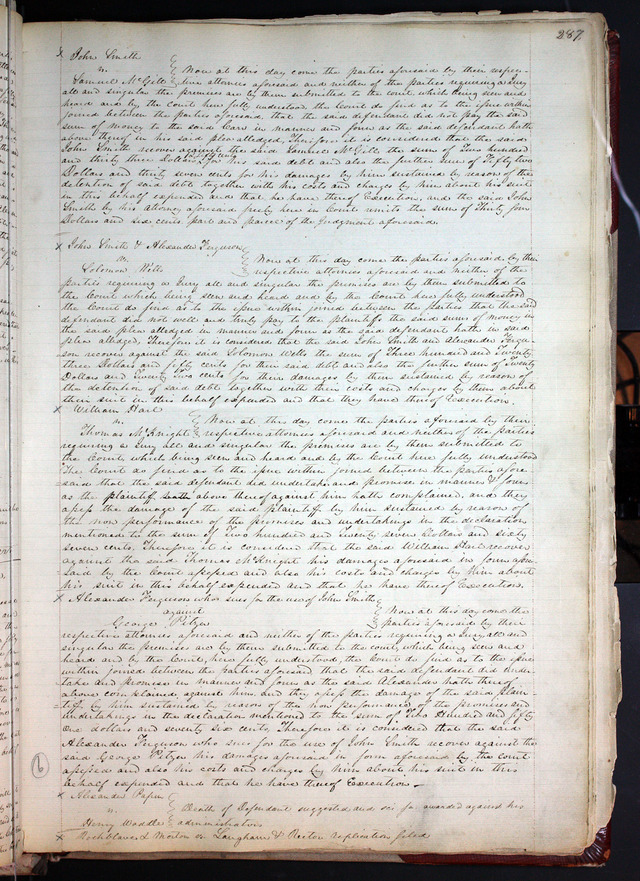 287
x John Smith
vs.
Now at this day come the parties aforesaid by their respec-
Samuel McGill
tive attornies aforesaid and neither of the parties requiring a Jury
all and singular the premises are by them submitted to the court which being seen and
heard and by the Court here fully understood, the Court do find as to the issue within
joined between the parties aforesaid, that the said defendant did not pay the said
sum of money to the said in manner and form as the said defendant hath
above thereof in his said plea alledged, Therefore it is considered that the said
John Smith recover against the said Samuel McGill the sum of Two hundred
and thirty three Dollars for his said debt and also the further sum of Fifty two
Dollars and thirty seven cents for his damages by him sustained by reason of the
detention of said debt together with his costs and charges by him about his suit
in this behalf expended and that he have thereof Execution, and the said John
Smith by his attorney aforesaid freely here in Court remits the sum of Thirty four
Dollars and six cents part and parcel of the Judgment aforesaid.
x John Smith & Alexander Ferguson
vs.
Now at this day come the parties aforesaid by their
Solomon Wells
respective attornies aforesaid and neither of the
parties requiring a Jury all and singular the premises are by them submitted to
the Court which being seen and heard and by the Court here fully understood
the Court do find as to the issue within joined between the parties that the said
defendant did not well and truly pay to the plaintiffs the said sums of money in
the said plea alledged in manner and form as the said defendant hath in said
plea alledged, Therefore it is considered that the said John Smith and Alexander Fergu-
son recover against the said Solomon Wells the sum of Three hundred and Twenty
three Dollars and fifty cents for their said debt and also the further sum of Twenty
Dollars and Twenty Two cents for their damages by them sustained by reason of
the detention of said debt together with their costs and charges by them about
their suit in this behalf expended and that they have thereof Execution.
x William Hart
vs.
Now at this day come the parties aforesaid by their
Thomas McKnight
respective attornies aforesaid and neither of the parties
requiring a Jury all and singular the premises are by them submitted to
the Court which being seen and heard and by the Court here fully understood
The Court do find as to the issue within joined between the parties afore-
said that the said defendant did undertake and promise in manner & form
as the plaintiff hath above thereof against him hath complained, and they
assess the damage of the said plaintiff by him sustained by reason of
the non performance of the promises and undertakings in the declaration
mentioned to the sum of Two hundred and twenty seven Dollars and sixty
seven cents. Therefore it is considered that the said William Hart recover
against the said Thomas McKnight his damages aforesaid in form afore-
said by the Court assessed and also his costs and charges by him about
his suit in this behalf expended and that he have thereof Execution.
x Alexander Ferguson who sues for the use of John Smith
against
Now at this day come the
George Pitzer
parties aforesaid by their
respective attornies aforesaid and neither of the parties requiring a Jury all and
singular the premises are by them submitted to the court, which being seen and
heard and by the Court, here fully understood, the Court do find as to the issue
within joined between the parties aforesaid that the said defendant did under-
take and promise in manner and form as the said Alexander hath thereof
above complained against him, and they assess the damage of the said plain-
tiff by him sustained by reason of the non performance of the promises and
undertakings in the declaration mentioned to the sum of Two Hundred and fifty
One dollars and seventy six cents, Therefore it is considered that the said
Alexander Ferguson who sues for the use of John Smith recover against the
said George Pitzer his damages aforesaid in form aforesaid by the Court
assessed and also his costs and charges by him about his suit in this
behalf expended and that he have thereof Execution
6
x Alexander Papin
vs.
Death of Defendant suggested and sci fa awarded against his
Henry Waddle
administrators
x Rochblave & Morton vs. Langham & Rector replication filed